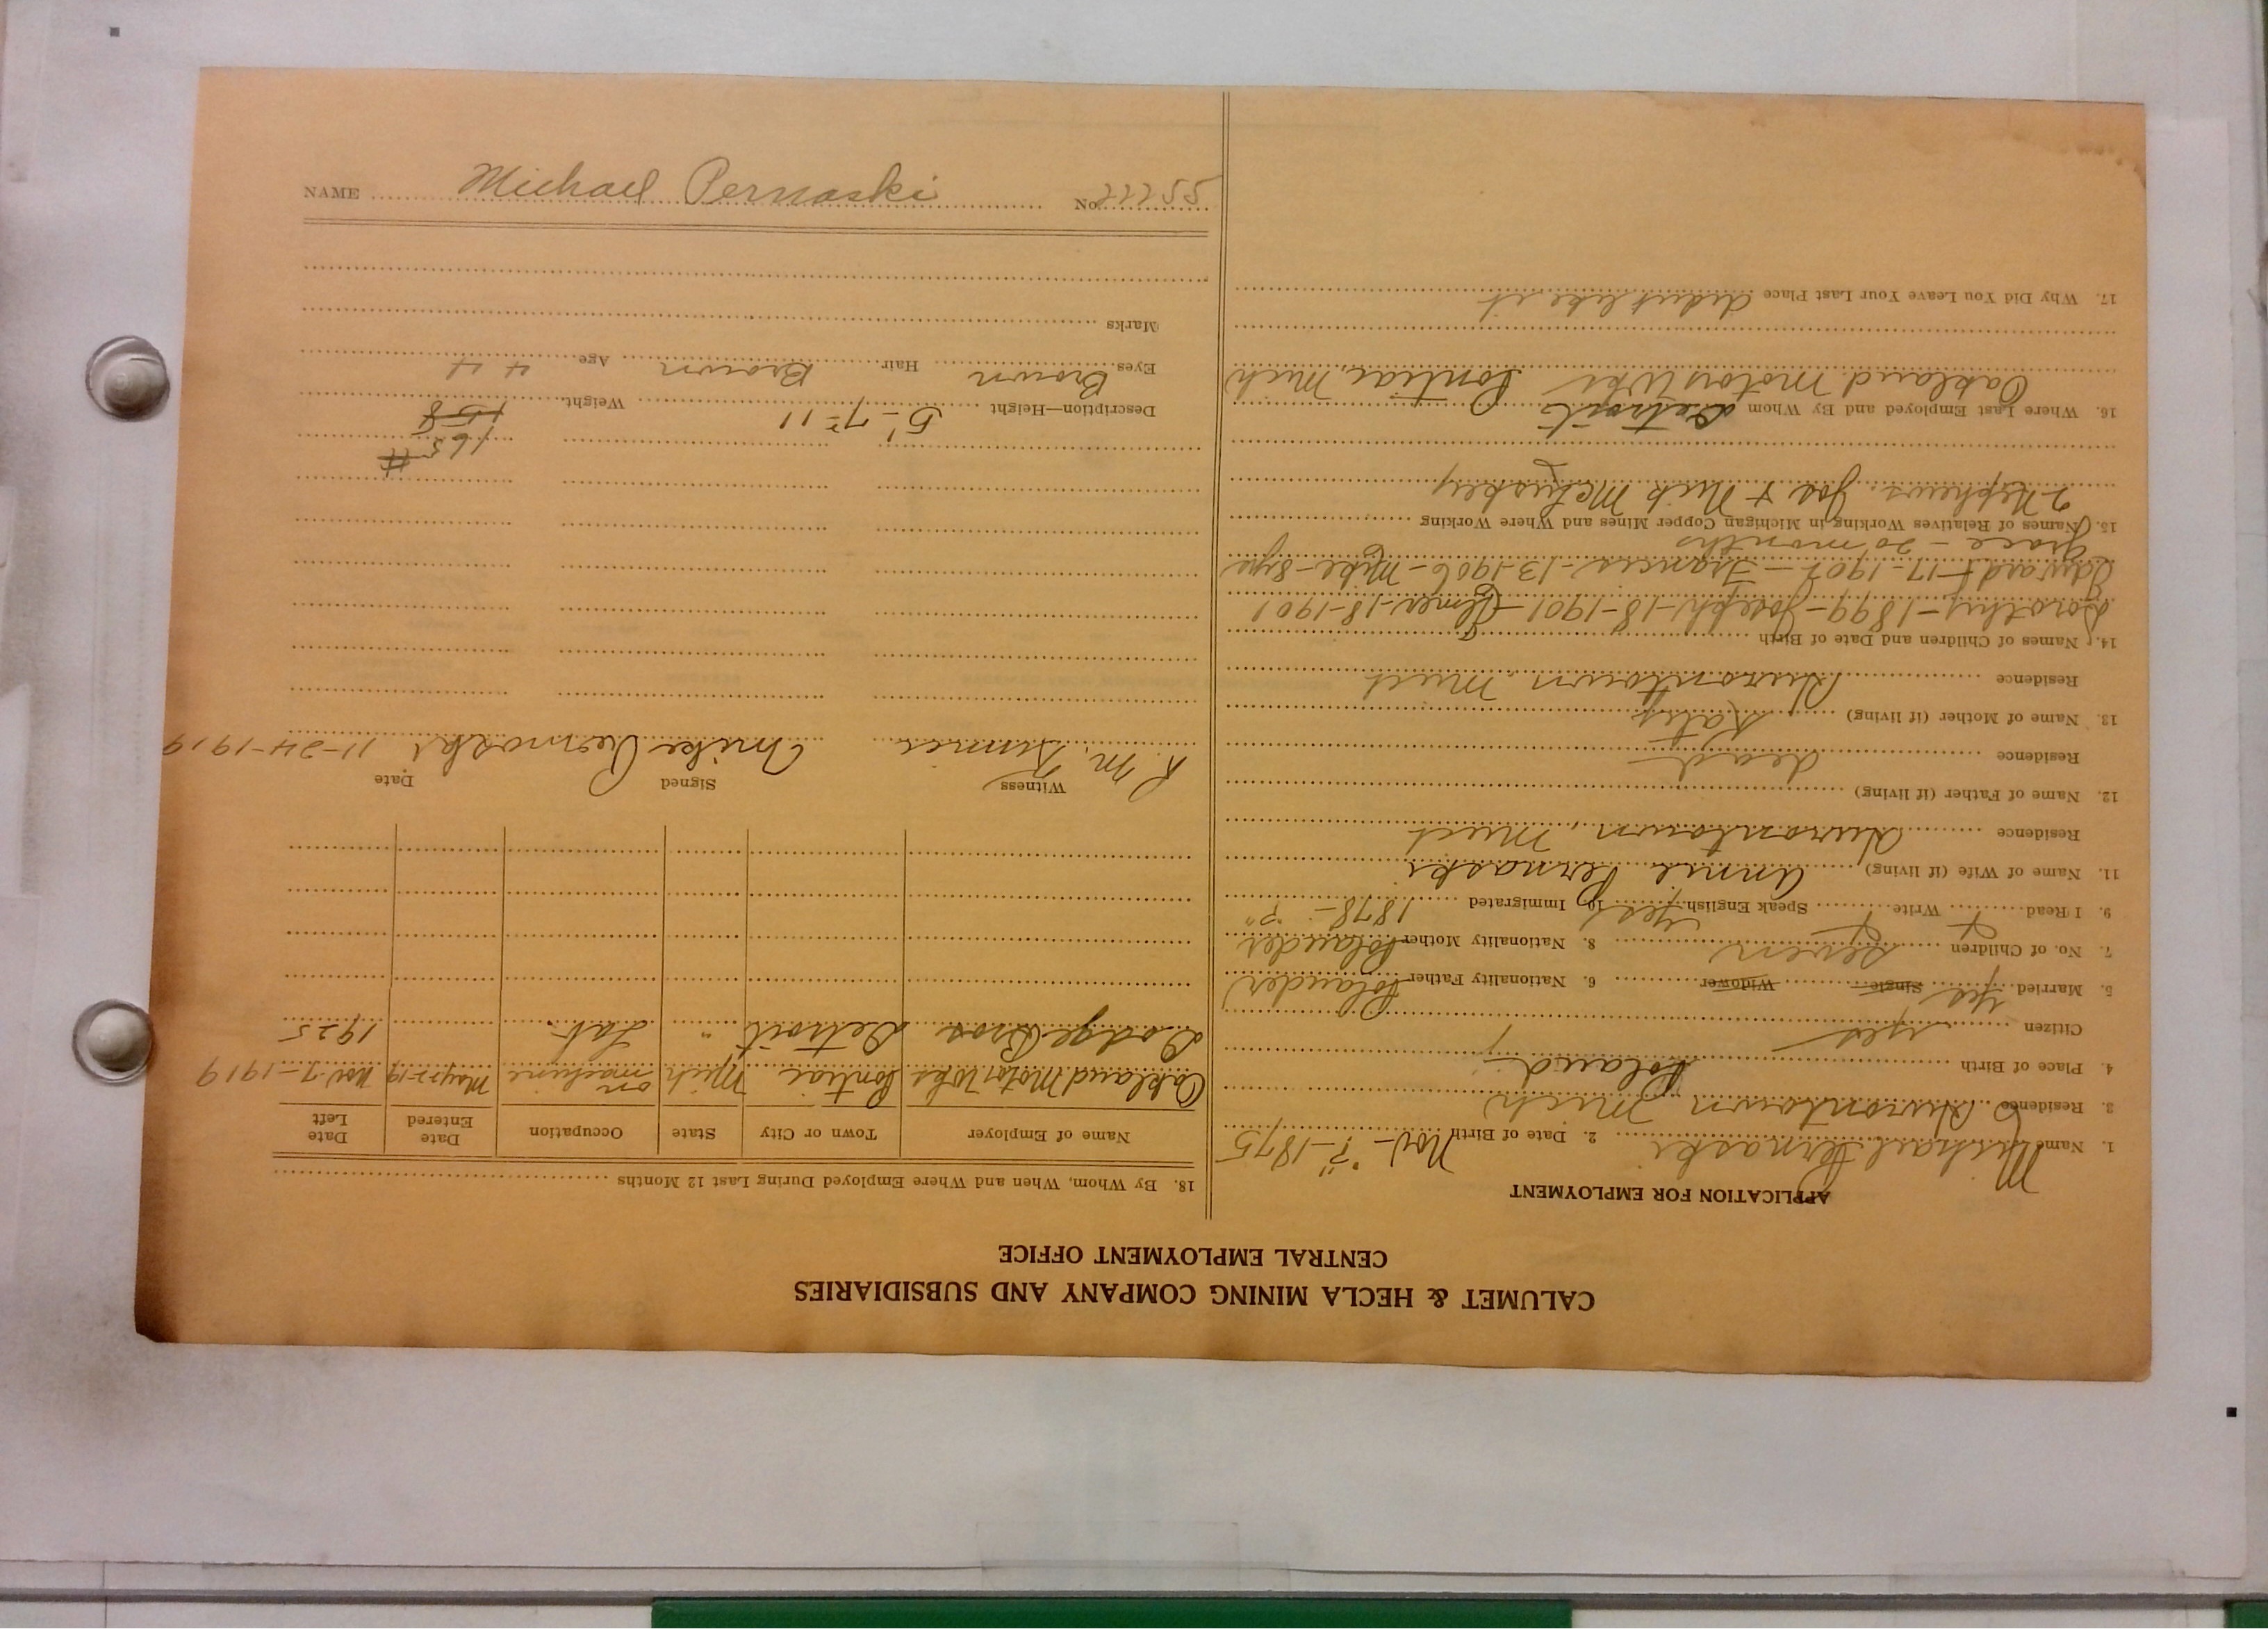 CALUMET & HECLA MINING COMPANY AND SUBSIDIARIES
CENTRAL EMPLOYMENT OFFICE
APPLICATION FOR EMPLOYMENT
1. Name Michael Pernaski 2. Date of Birth Nov - "?" - 1875
3. Residence Hurontown Mich
4. Place of Birth Poland
Citizen yes
5. Married yes Single Widower 6. Nationality Father Polander
7. No. of Children seven 8. Nationality Mother Polander
9. I Read Write Speak English yes 10. Immigrated 1878 - "?"
11. Name of Wife (if living) Annie Pernaski
Residence Hurontown, Mich
12. Name of Father (if living)
Residence dead
13. Name of Mother (if living) Katy
Residence Hurontown, Mich
14. Names of Children and Date of Birth
Dorothy - 1899 - Joseph - 18 - 1901 - Elmer - 18 - 1901
Edward - 17 - 1902 - Frances - 13 - 1906 - Mike - 8 yrs
Grace - 20 months
15. Names of Relatives Working in Michigan Copper Mines and Where Working
2 Nephews. Joe & Mick
16. Where Last Employed and By Whom Detroit
Oakland Motors Wks Pontiac, Mich
17. Why Did You Leave Your Last Place didnt like it
18. By Whom, When and Where Employed During Last 12 Months
Name of Employer Town or City State Occupation Date Entered Date Left
Oakland Motor Wks Pontiac Mich on machine May 22-19 Nov 7-1919
Dodge Bros Detroit " Lab. 1925
Witness Signed Date
R. M. Mike Pernaski 11-24-1919
165 #
Description—Height 5'-7"-11 Weight 158
Eyes Brown Hair Brown Age 44
Marks
NAME Michael Pernaski No 22255